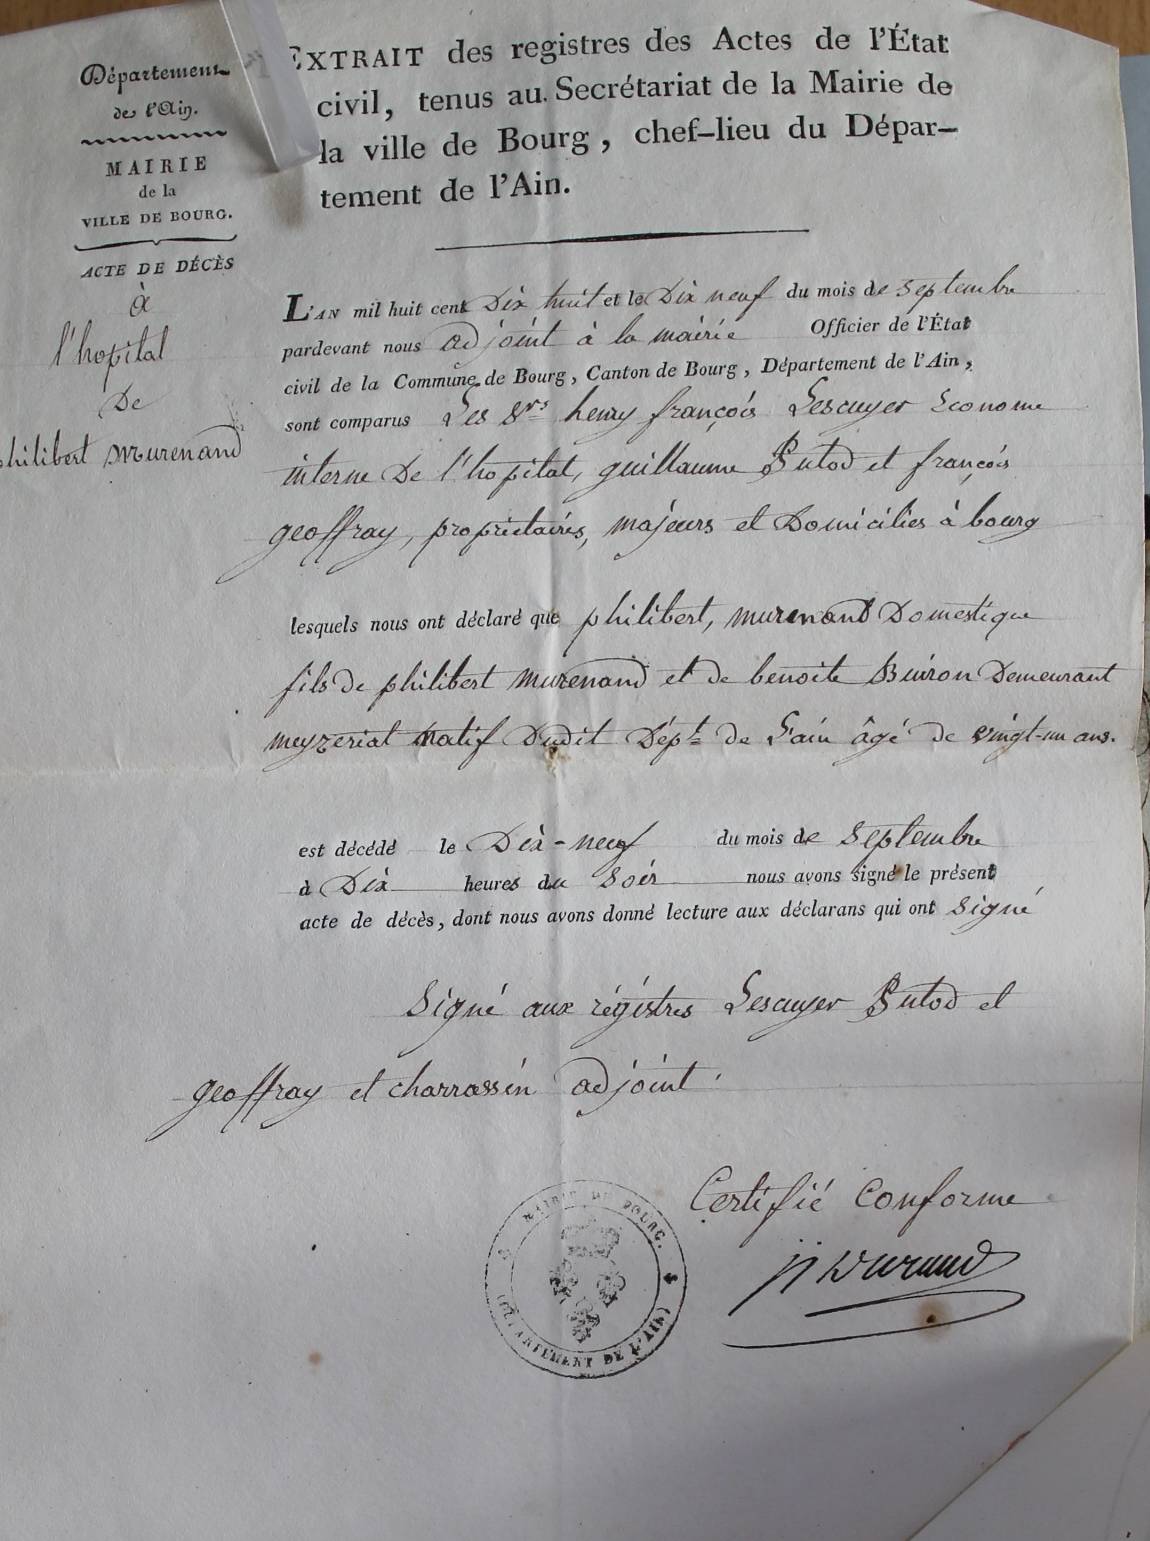 Département
de l'Ain.
MAIRIE
de la
VILLE DE BOURG.
ACTE DE DÉCÈS
à
l'hopital
De
philibert murenand
EXTRAIT des registres des Actes de l'État
civil, tenus au Secrétariat de la Mairie de
la ville de Bourg, chef-lieu du Dépar-
tement de l'Ain.
L'AN mil huit cent Dix huit et le Dix neuf du mois de Septembre
pardevant nous adjoint à la mairie Officier de l'État
civil de la Commune de Bourg, Canton de Bourg, Département de l'Ain,
sont comparus Les Srs henry françois Lescuyer Econome
interne De l'hopital, guillaume Putod et françois
geoffray, propriétaires, majeurs et Domiciliés à bourg
lesquels nous ont déclaré que philibert, murenand Domestique
fils de philibert murenand et de benoite Buiron Demeurant
meyzeriat natif Dudit Dépt de L'ain âgé de vingt-un ans.
est décédé le Dix-neuf du mois de Septembre
à Dix heures du Soir nous avons signé le présent
acte de décès, dont nous avons donné lecture aux déclarans qui ont signé
Signé aux régistres Lescuyer Putod et
geoffray et charrassin adjoint.
Certifié Conforme
MAIRIE DE BOURG.
(DÉPARTEMENT DE L'AIN)